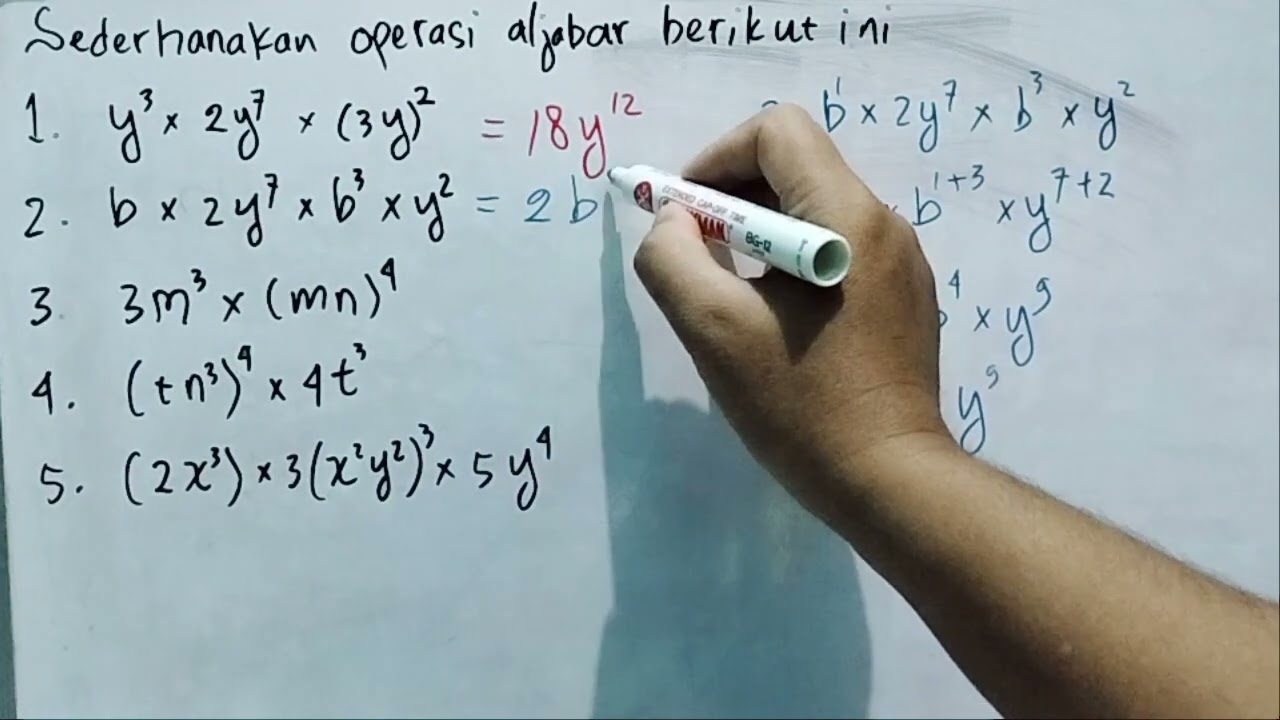 Sederhanakan operasi aljabar berikut ini
1. y³ × 2y⁷ × (3y)² = 18y¹²
2. b × 2y⁷ × b³ × y² = 2b
3. 3m³ × (mn)⁴
4. (tn³)⁴ × 4t³
5. (2x³) × 3(x²y²)³ × 5y⁴
b¹ × 2y⁷ × b³ × y²
b¹⁺³ × y⁷⁺²
⁴ × y⁹
y⁹
EXTENDED CAP-OFF TIME
BG-12